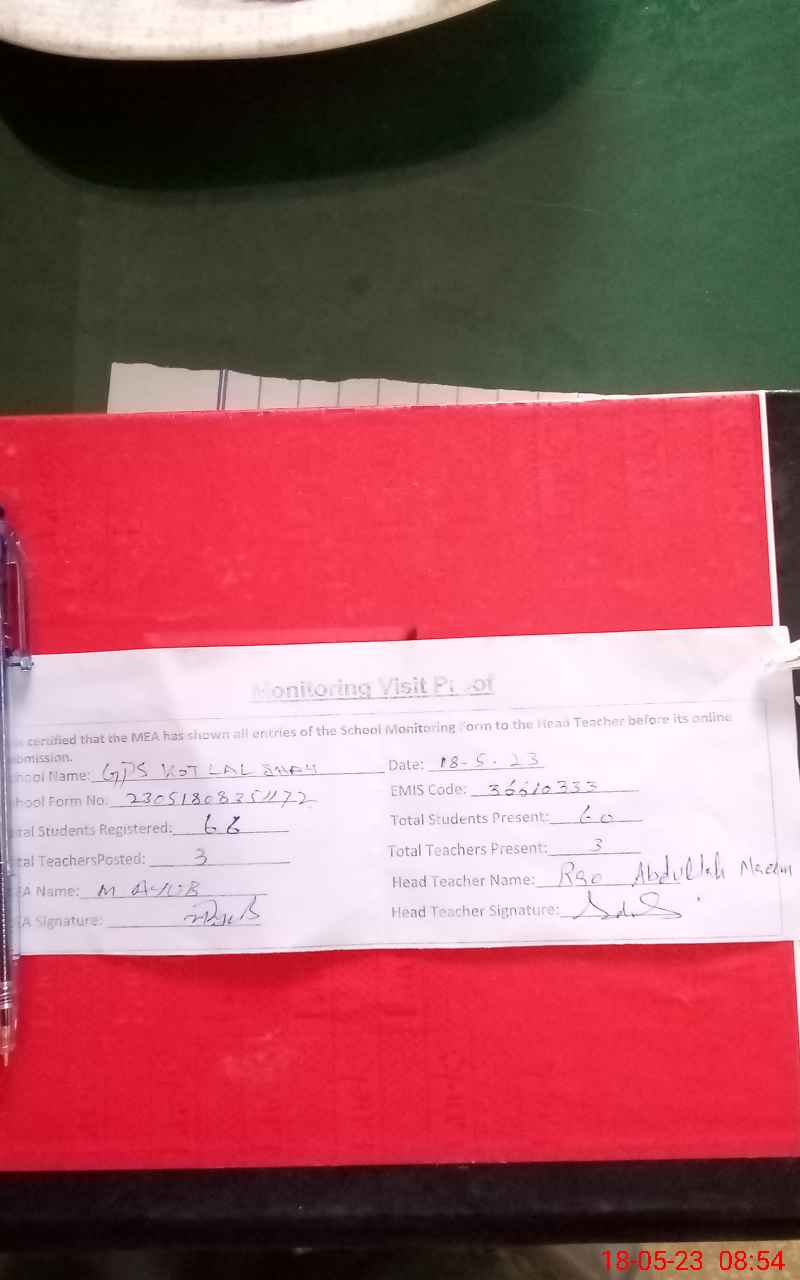 Monitoring Visit Proof
is certified that the MEA has shown all entries of the School Monitoring Form to the Head Teacher before its online
bmission.
hool Name: GPS KOT LAL SHAH Date: 18-5-23
hool Form No: EMIS Code: 36610333
tal Students Registered: 66 Total Students Present: 60
tal TeachersPosted: 3 Total Teachers Present: 3
EA Name: M AYUB Head Teacher Name: Rao Abdullah Naeem
EA Signature: Head Teacher Signature:
18-05-23 08:54